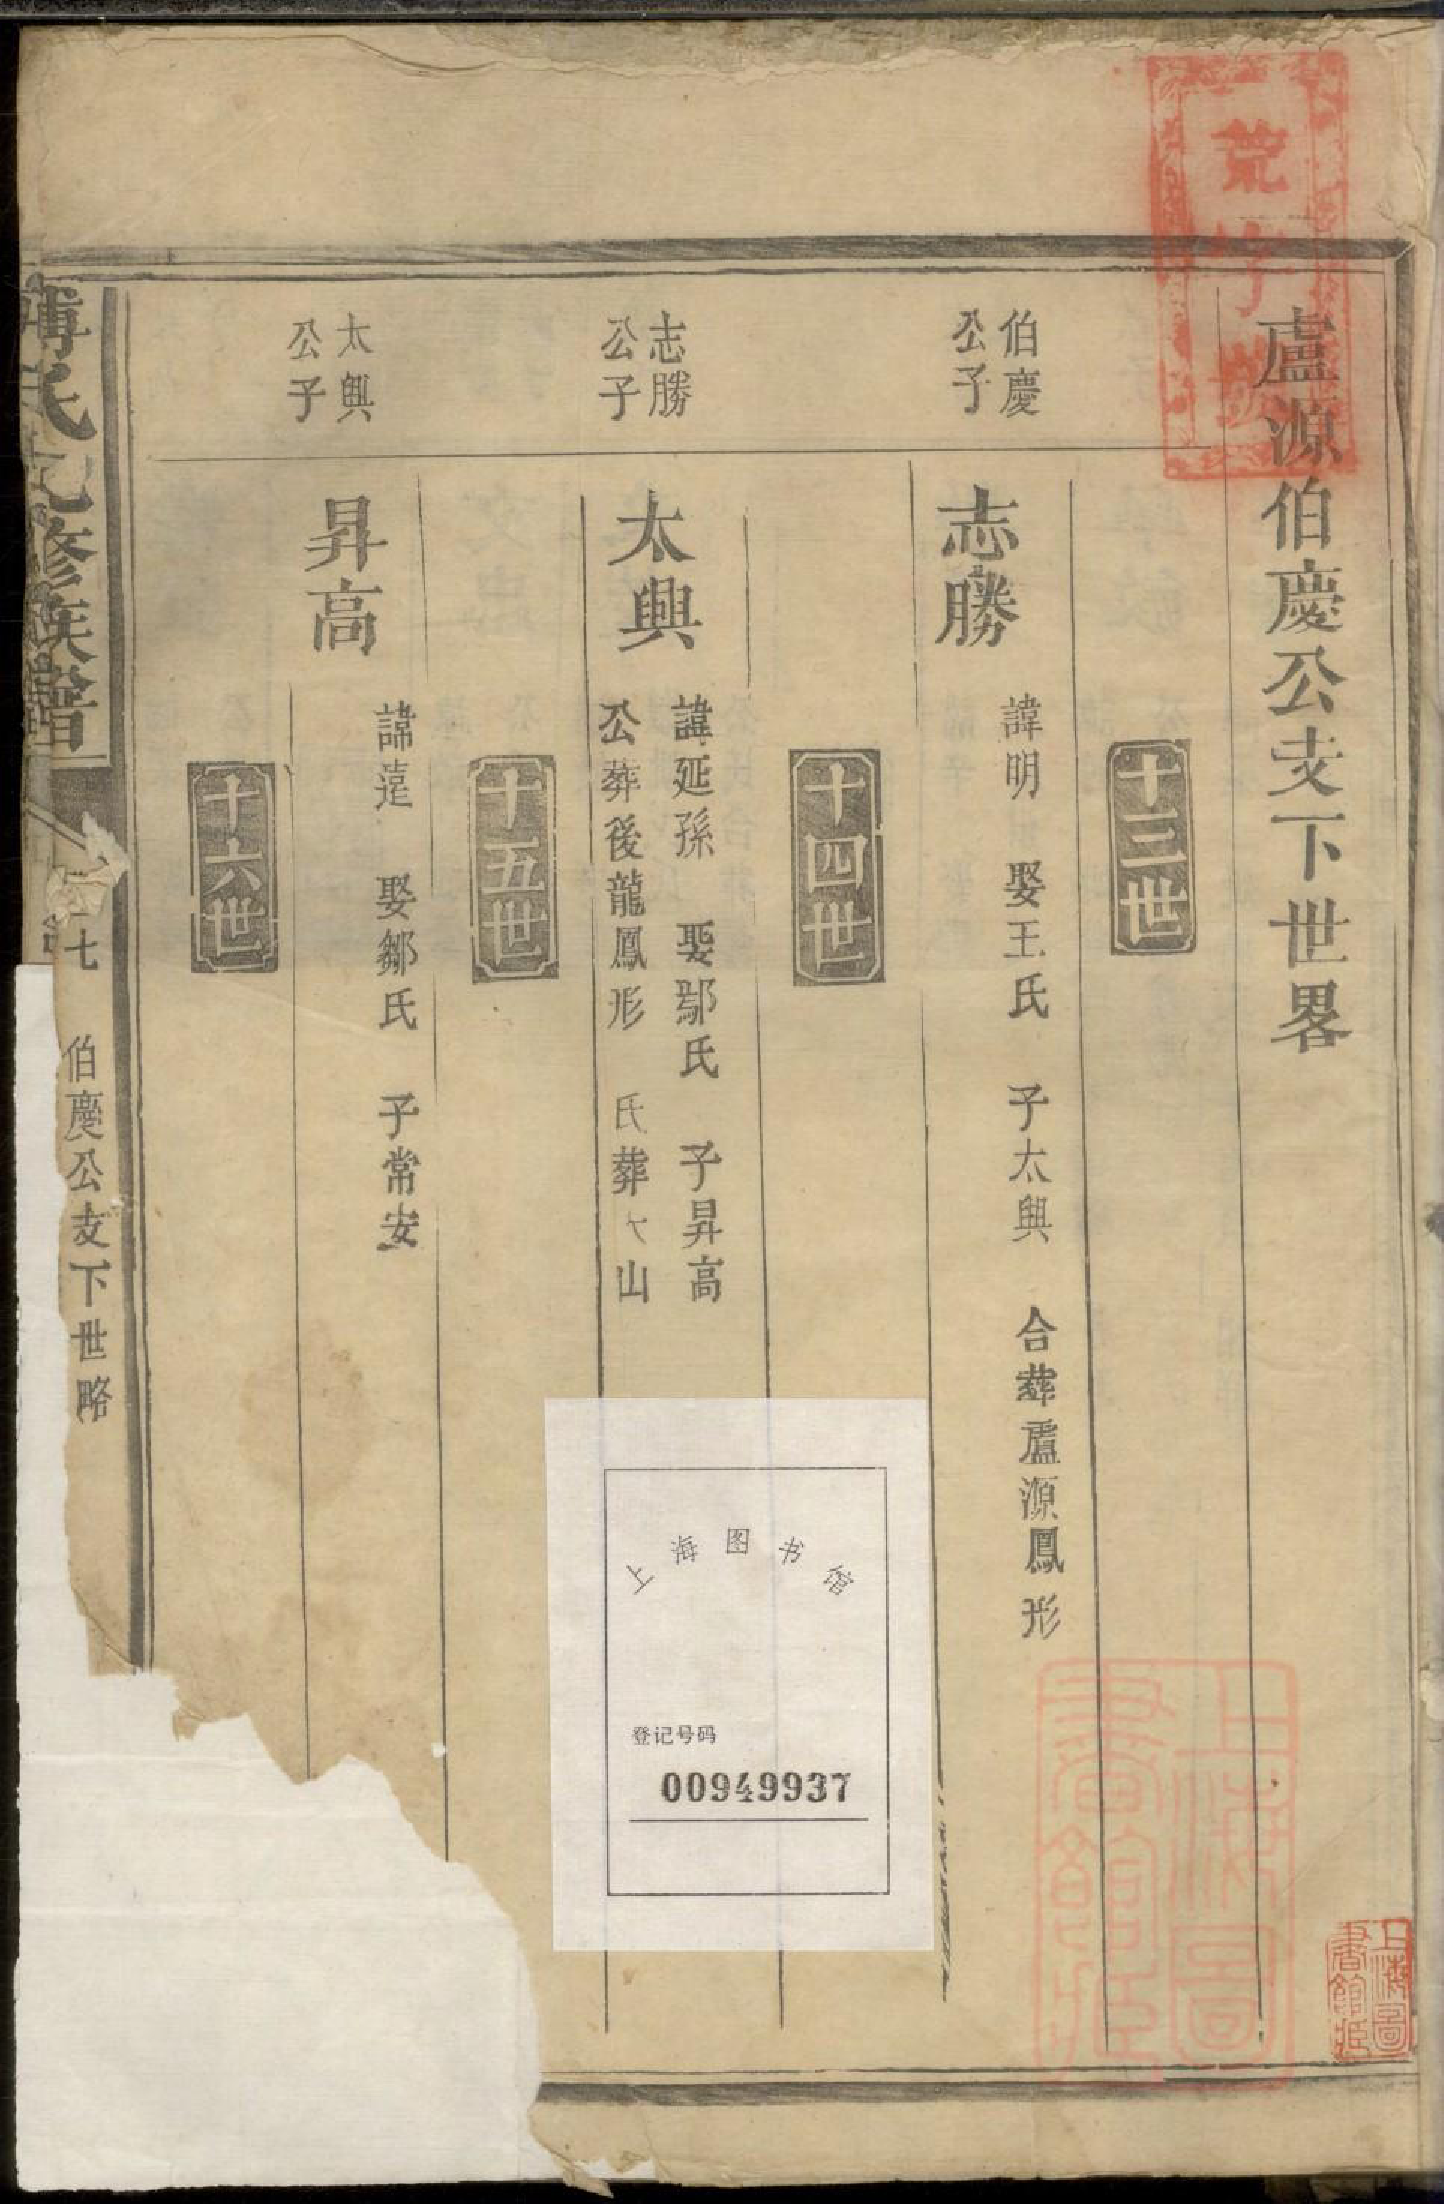 荒字號
盧源伯慶公支下世畧
十三世
伯慶
公子
志勝
諱明 娶王氏 子太興 合葬盧源鳳形
十四世
志勝
公子
太興
諱延孫 娶鄢氏 子昇高
公葬後龍鳳形 氏葬大山
十五世
太興
公子
昇高
諱達 娶鄒氏 子常安
十六世
氏 修族譜
七 伯慶公支下世略
上海图书馆
登记号码
00949937
上海圖
書館藏
上海圖
書館藏